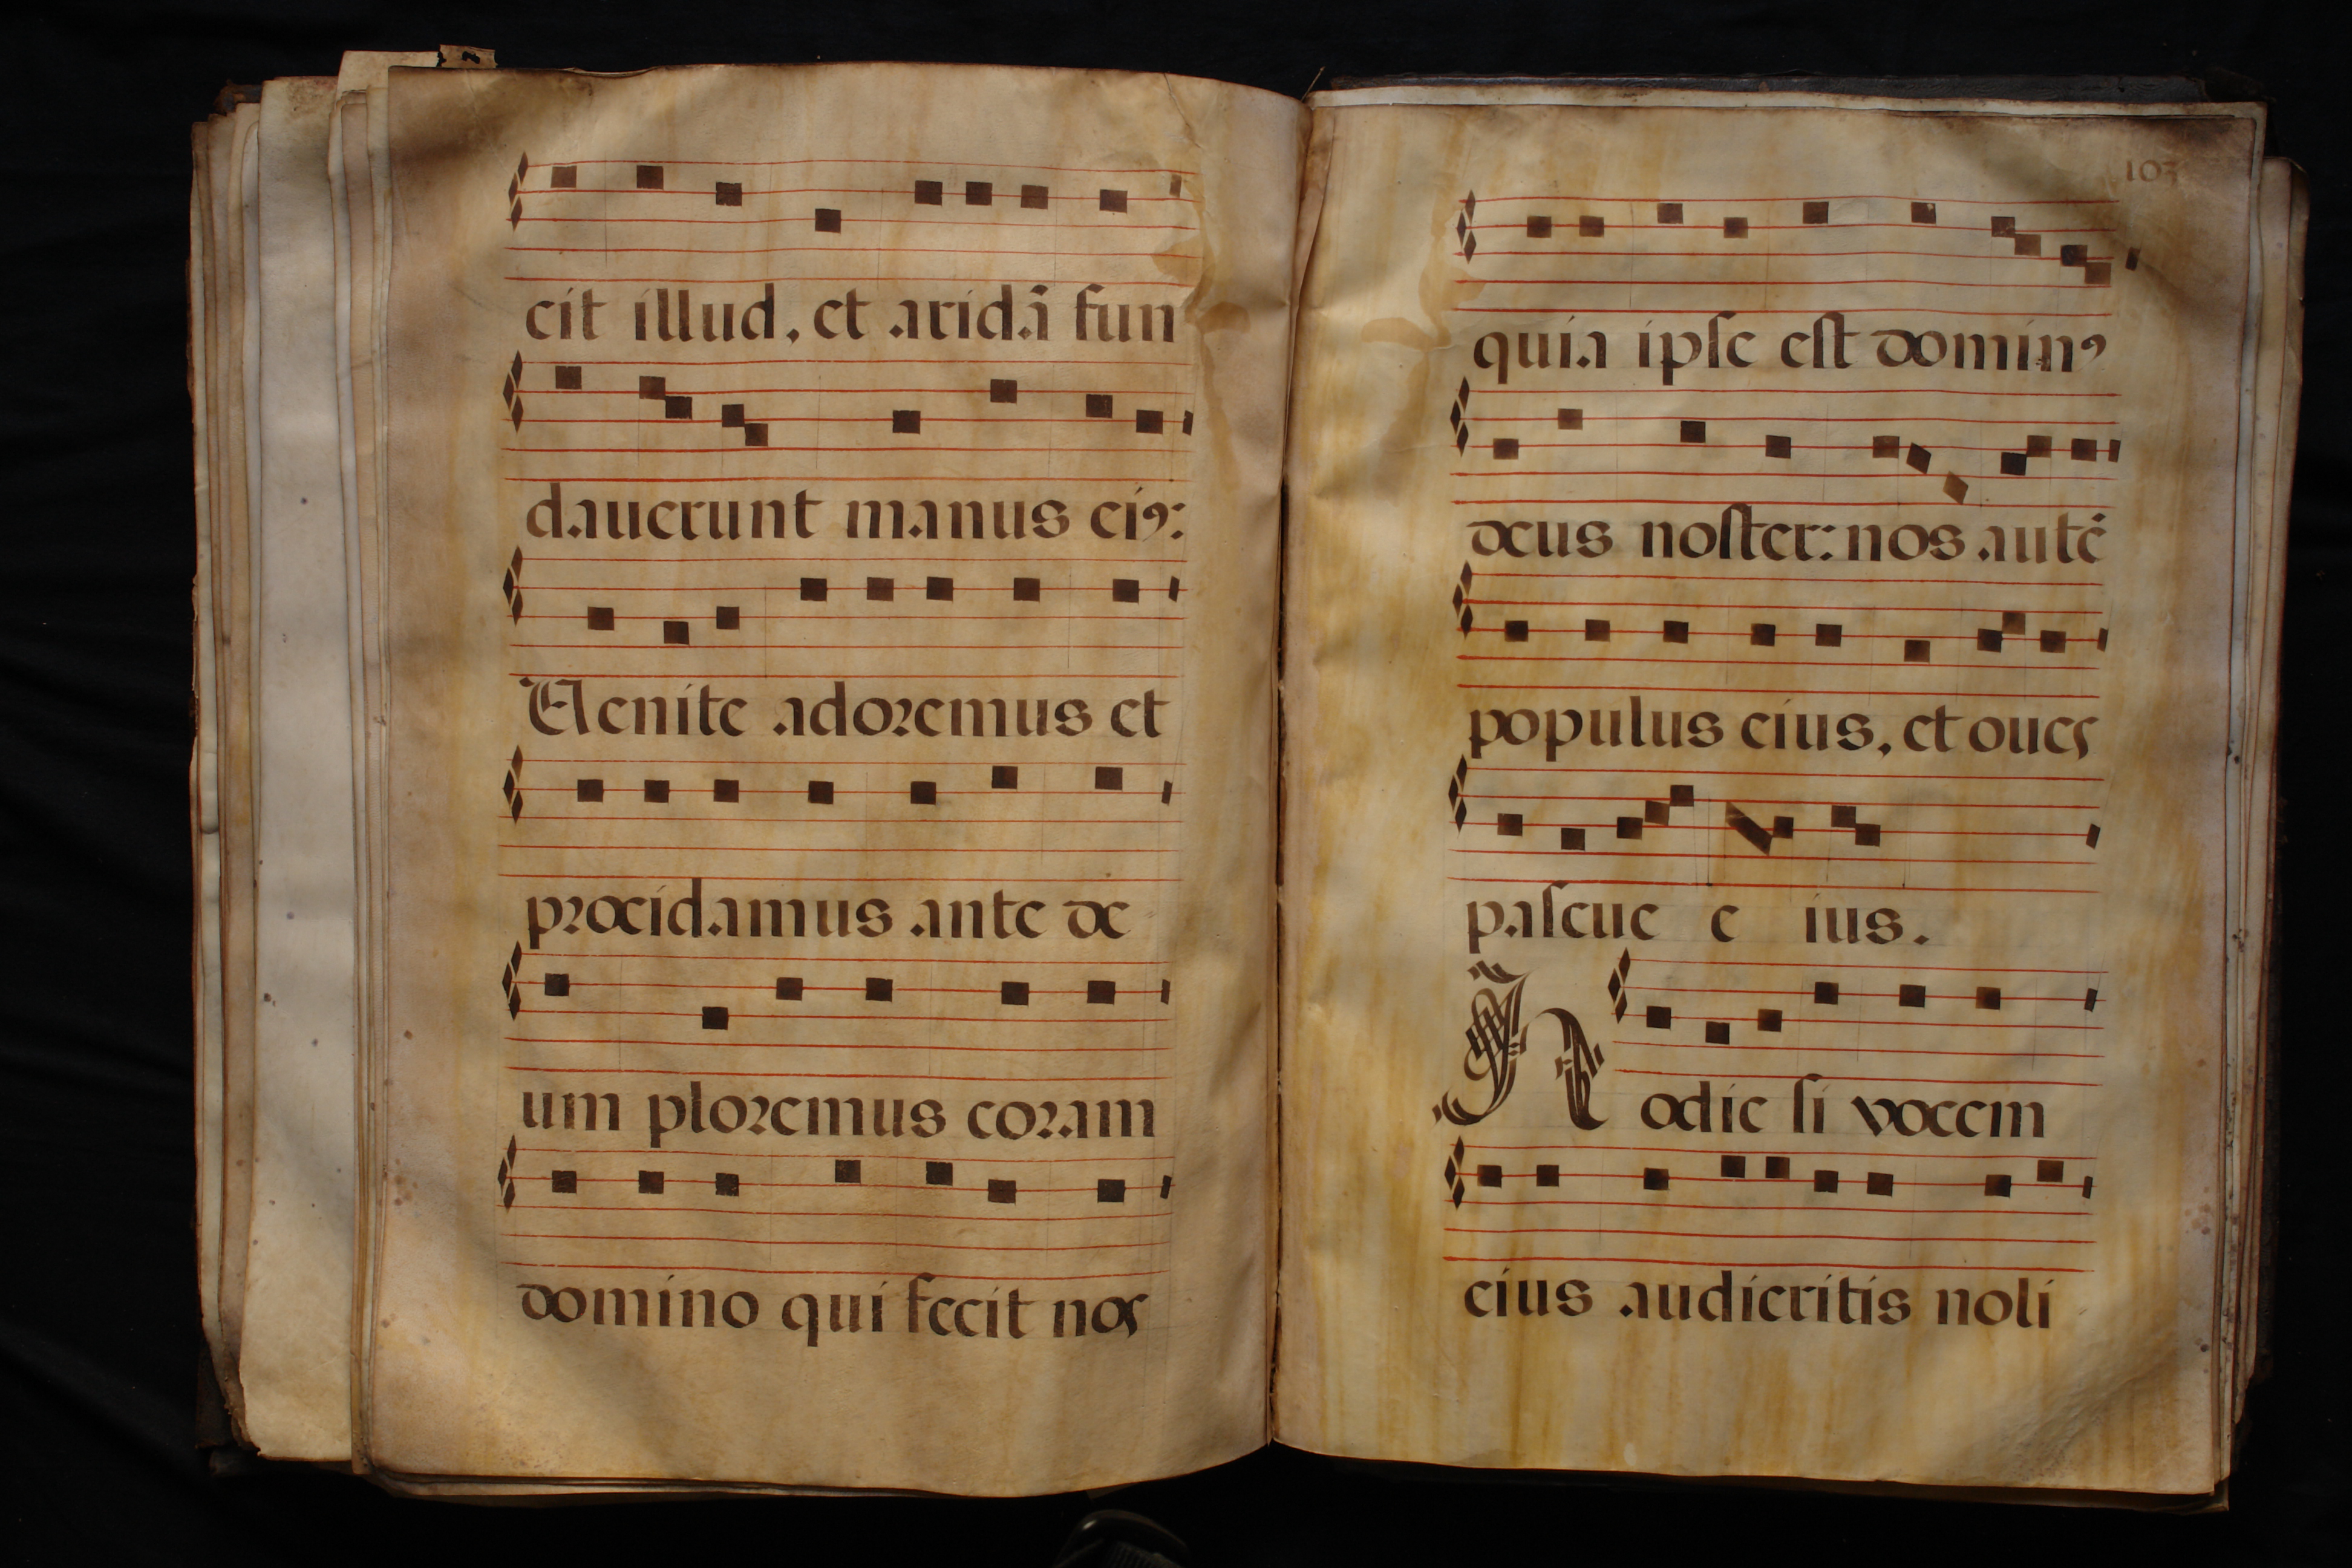 cit illud, et aridã fun
dauerunt manus ei9:
Uenite adoremus et
procidamus ante de
um ploremus coram
domino qui fecit nos
103
quia ipse est domin9
deus noster: nos autē
populus eius, et oues
pascue e ius.
Hodie si vocem
eius audieritis noli